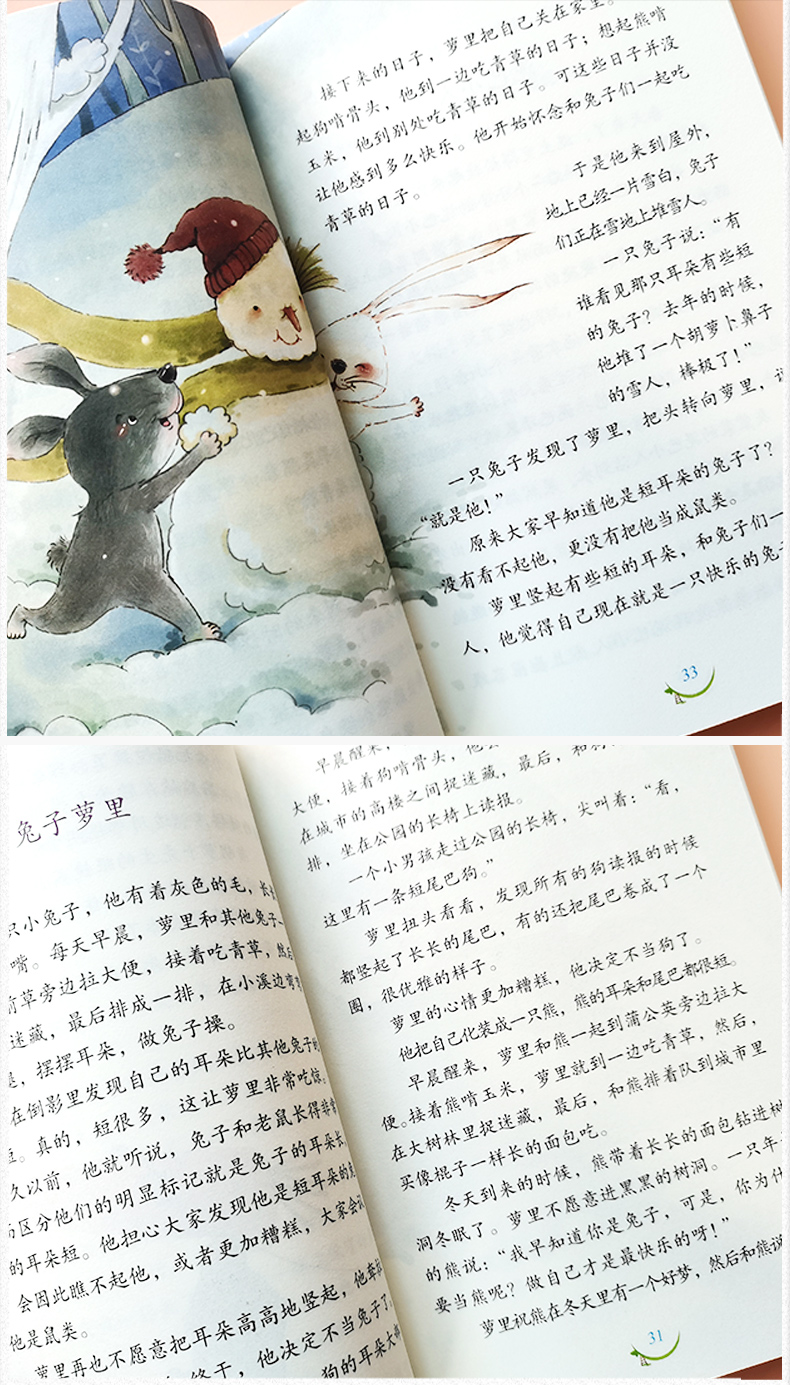 接下来的日子，萝里把自己关在家里。
起狗啃骨头，他到一边吃青草的日子；想起熊啃
玉米，他到别处吃青草的日子。可这些日子并没
让他感到多么快乐。他开始怀念和兔子们一起吃
青草的日子。
于是他来到屋外，
地上已经一片雪白，兔子
们正在雪地上堆雪人。
一只兔子说：“有
谁看见那只耳朵有些短
的兔子？去年的时候，
他堆了一个胡萝卜鼻子
的雪人，棒极了！”
一只兔子发现了萝里，把头转向萝里，
“就是他！”
原来大家早知道他是短耳朵的兔子了？
没有看不起他，更没有把他当成鼠类。
萝里竖起有些短的耳朵，和兔子们一
人，他觉得自己现在就是一只快乐的兔子
33
兔子萝里
只小兔子，他有着灰色的毛，
嘴。每天早晨，萝里和其他兔子
草旁边拉大便，接着吃青草，然后
迷藏，最后排成一排，在小溪边
，摆摆耳朵，做兔子操。
在倒影里发现自己的耳朵比其他兔子的
。真的，短很多，这让萝里非常吃惊。
久以前，他就听说，兔子和老鼠长得非常
区分他们的明显标记就是兔子的耳朵长，
的耳朵短。他担心大家发现他是短耳朵的
会因此瞧不起他，或者更加糟糕，大家会
他是鼠类。
萝里再也不愿意把耳朵高高地竖起，他
干，他决定不当兔子了
狗的耳朵大
早晨醒来，
大便，接着狗啃骨头，他
在城市的高楼之间捉迷藏，最后，和
排，坐在公园的长椅上读报。
一个小男孩走过公园的长椅，尖叫着：“看，
这里有一条短尾巴狗。”
萝里扭头看看，发现所有的狗读报的时候
都竖起了长长的尾巴，有的还把尾巴卷成了一个
圈，很优雅的样子。
萝里的心情更加糟糕，他决定不当狗了。
他把自己化装成一只熊，熊的耳朵和尾巴都很短。
早晨醒来，萝里和熊一起到蒲公英旁边拉大
便。接着熊啃玉米，萝里就到一边吃青草，然后，
在大树林里捉迷藏，最后，和熊排着队到城市里
买像棍子一样长的面包吃。
冬天到来的时候，熊带着长长的面包钻进树
洞冬眠了。萝里不愿意进黑黑的树洞。一只年
的熊说：“我早知道你是兔子，可是，你为什
要当熊呢？做自己才是最快乐的呀！”
萝里祝熊在冬天里有一个好梦，然后和熊说
31